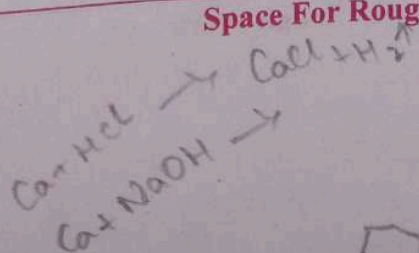 Space For Roug
Ca + HCl → CaCl + H₂↑
Ca + NaOH →